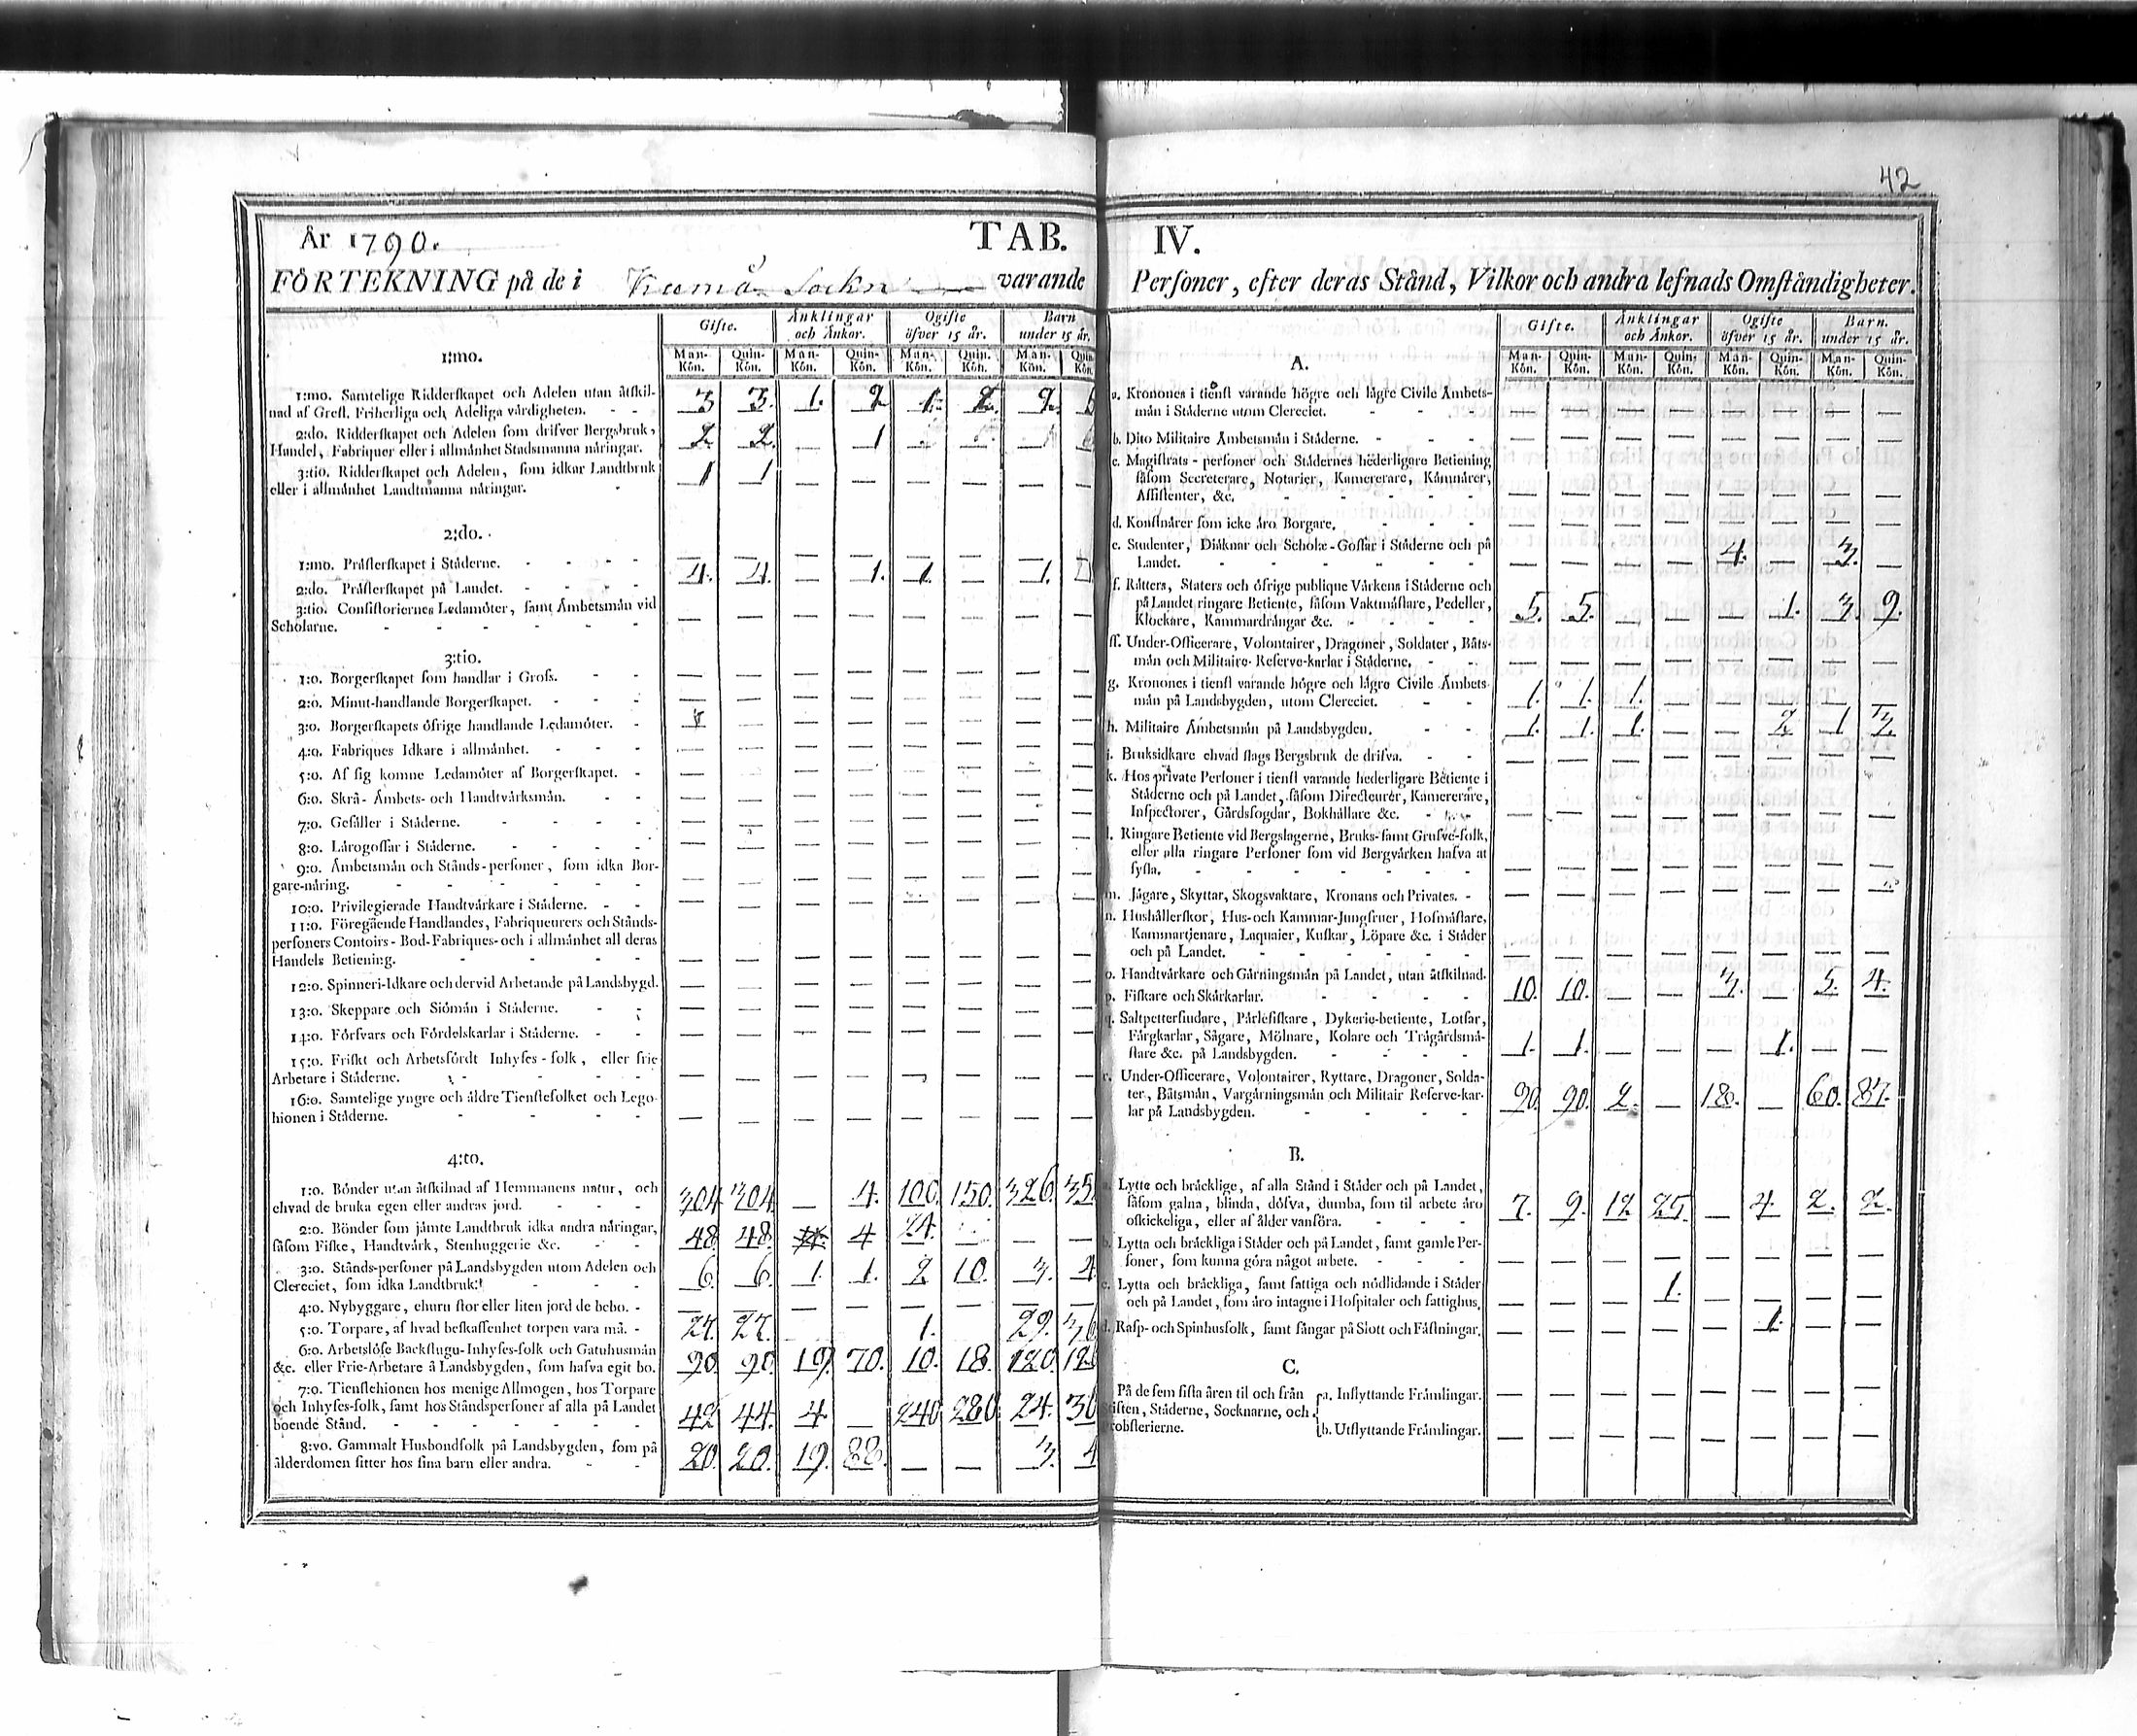 42
År 1790. TAB. IV.
FÖRTEKNING på de i Socken varande Personer, efter deras Stånd, Vilkor och andra lefnads Omständigheter.
Gifte. Änklingar och Änkor. Ogifte öfver 15 år. Barn under 15 år.
Man-Kön. Quin-Kön. Man-Kön. Quin-Kön. Man-Kön. Quin-Kön. Man-Kön. Quin-Kön.
1:mo.
1:mo. Samtelige Ridderskapet och Adelen utan åtskil-
nad af Grefl. Friherliga och Adeliga värdigheten. - - 3 3. 1. 2 1. 2. 2.
2:do. Ridderskapet och Adelen som drifver Bergsbruk,
Handel, Fabriquer eller i allmänhet Stadsmanna näringar. 2 2. — 1
3:tio. Ridderskapet och Adelen, som idkar Landtbruk
eller i allmänhet Landtmanna näringar. - 1 1
2:do.
1:mo. Prästerskapet i Städerne. - - - - — — — — — — —
2:do. Prästerskapet på Landet. - - - - 4. 4. — 1. 1. — 1.
3:tio. Consistoriernes Ledamöter, samt Ämbetsmän vid
Scholarne. - - - - - - — — — — — — — —
3:tio.
1:o. Borgerskapet som handlar i Gross. - - — — — — — — — —
2:o. Minut-handlande Borgerskapet. - - - — — — — — — — —
3:o. Borgerskapets öfrige handlande Ledamöter. - — — — — — — —
4:o. Fabriques Idkare i allmänhet. - - - — — — — — — — —
5:o. Af sig komne Ledamöter af Borgerskapet. - — — — — — — — —
6:o. Skrå- Ämbets- och Handtvärksmän. - - — — — — — — — —
7:o. Gesäller i Städerne. - - - - — — — — — — — —
8:o. Lärogossar i Städerne. - - - - — — — — — — — —
9:o. Ämbetsmän och Stånds-personer, som idka Bor-
gare-näring. - - - - - - — — — — — — — —
10:o. Privilegierade Handtvärkare i Städerne. - - — — — — — — — —
11:o. Föregående Handlandes, Fabriqueurers och Stånds-
personers Contoirs- Bod-Fabriques-och i allmänhet all deras
Handels Betiening. - - - - — — — — — — — —
12:o. Spinneri-Idkare och dervid Arbetande på Landsbygd. — — — — — — — —
13:o. Skeppare och Siömän i Städerne. - - — — — — — — — —
14:o. Försvars och Fördelskarlar i Städerne. - - — — — — — — — —
15:o. Friskt och Arbetsfördt Inhyses-folk, eller frie
Arbetare i Städerne. - - - - — — — — — — — —
16:o. Samtelige yngre och äldre Tienstefolket och Lego-
hionen i Städerne. - - - - — — — — — — — —
4:to.
1:o. Bönder utan åtskilnad af Hemmanens natur, och
ehvad de bruka egen eller andras jord. - - - 304 304 — 4. 100. 150. 326.
2:o. Bönder som jämte Landtbruk idka andra näringar,
såsom Fiske, Handtvärk, Stenhuggerie &c. - - 48. 48. 4 24. — —
3:o. Stånds-personer på Landsbygden utom Adelen och
Clereciet, som idka Landtbruk. - - - 6. 6. 1. 1. 2 10. 3. 4.
4:o. Nybyggare, ehuru stor eller liten jord de bebo. - — — — — — — — —
5:o. Torpare, af hvad beskaffenhet torpen vara må. - 27. 27. 1. 29.
6:o. Arbetslöse Backstugu-Inhyses-folk och Gatuhusmän
&c. eller Frie-Arbetare å Landsbygden, som hafva egit bo. 90. 90. 19. 70. 10. 18. 120.
7:o. Tienstehionen hos menige Allmogen, hos Torpare
och Inhyses-folk, samt hos Ståndspersoner af alla på Landet
boende Stånd. - - - - - - 42 44. 4. — 240 280 24.
8:vo. Gammalt Husbondfolk på Landsbygden, som på
ålderdomen sitter hos sina barn eller andra. - - 20. 20. 19. 88. — — 3. 4
Gifte. Änklingar och Änkor. Ogifte öfver 15 år. Barn. under 15 år.
Man-Kön. Quin-Kön. Man-Kön. Quin-Kön. Man-Kön. Quin-Kön. Man-Kön. Quin-Kön.
A.
a. Kronones i tienst varande högre och lägre Civile Ämbets-
män i Städerne utom Clereciet. - - - — — — — — — — —
b. Dito Militaire Ämbetsmän i Städerne. - - - — — — — — — — —
c. Magistrats-personer och Städernes hederligare Betiening
såsom Secreterare, Notarier, Kamererare, Kämnärer,
Assistenter, &c. - - - - - — — — — — — — —
d. Konstnärer som icke äro Borgare. - - - — — — — — — — —
e. Studenter, Diäknar och Scholæ-Gossar i Städerne och på
Landet. - - - - - - — — — — 4. — 3. —
f. Rätters, Staters och öfrige publique Värkens i Städerne och
på Landet ringare Betiente, såsom Vaktmästare, Pedeller,
Klockare, Kammardrängar &c. - - - - 5. 5. — — — 1. 3. 9.
ff. Under-Officerare, Volontairer, Dragoner, Soldater, Båts-
män och Militaire-Reserve-karlar i Städerne. - - — — — — — — — —
g. Kronones i tienst varande högre och lägre Civile Ämbets-
män på Landsbygden, utom Clereciet. - - 1. 1. 1. — — — — —
h. Militaire Ämbetsmän på Landsbygden. - - 1. 1. 1. — — 2 1 3
i. Bruksidkare ehvad slags Bergsbruk de drifva. - - — — — — — — — —
k. Hos private Personer i tienst varande hederligare Betiente i
Städerne och på Landet, såsom Directeurer, Kamererare,
Inspectorer, Gårdsfogdar, Bokhållare &c. - — — — — — — — —
l. Ringare Betiente vid Bergslagerne, Bruks-samt Grufve-folk,
eller alla ringare Personer som vid Bergvärken hafva at
sysla. - - - - - - — — — — — — — —
m. Jägare, Skyttar, Skogsvaktare, Kronans och Privates. - — — — — — — — —
n. Hushållerskor, Hus-och Kammar-Jungfruer, Hofmästare,
Kammartjenare, Laquaier, Kuskar, Löpare &c. i Städer
och på Landet. - - - - - — — — — — — — —
o. Handtvärkare och Gärningsmän på Landet, utan åtskilnad. 10. 10. — — 3. — 3. 4.
p. Fiskare och Skärkarlar. - - - -
q. Saltpettersiudare, Pärlefiskare, Dykerie-betiente, Lotsar,
Färgkarlar, Sågare, Mölnare, Kolare och Trägårdsmä-
stare &c. på Landsbygden. - - - - 1. 1. — — — 1. — —
r. Under-Officerare, Volontairer, Ryttare, Dragoner, Solda-
ter, Båtsmän, Vargärningsmän och Militair Reserve-kar-
lar på Landsbygden. - - - - 90. 90. 2. — 18. — 60. 87.
B.
a. Lytte och bräcklige, af alla Stånd i Städer och på Landet,
såsom galna, blinda, döfva, dumba, som til arbete äro
oskickeliga, eller af ålder vanföra. - - - 7. 9. 12 25. — 4. 2. 2.
b. Lytta och bräckliga i Städer och på Landet, samt gamle Per-
soner, som kunna göra något arbete. - - - — — — — — — — —
c. Lytta och bräckliga, samt fattiga och nödlidande i Städer
och på Landet, som äro intagne i Hospitaler och fattighus. — — — 1. — — — —
d. Rasp-och Spinhusfolk, samt fångar på Slott och Fästningar. — — — — — 1. — —
C.
På de fem sista åren til och från a. Inflyttande Främlingar. — — — — — — — —
Stiften, Städerne, Socknarne, och
Probsterierne. b. Utflyttande Främlingar. — — — — — — — —